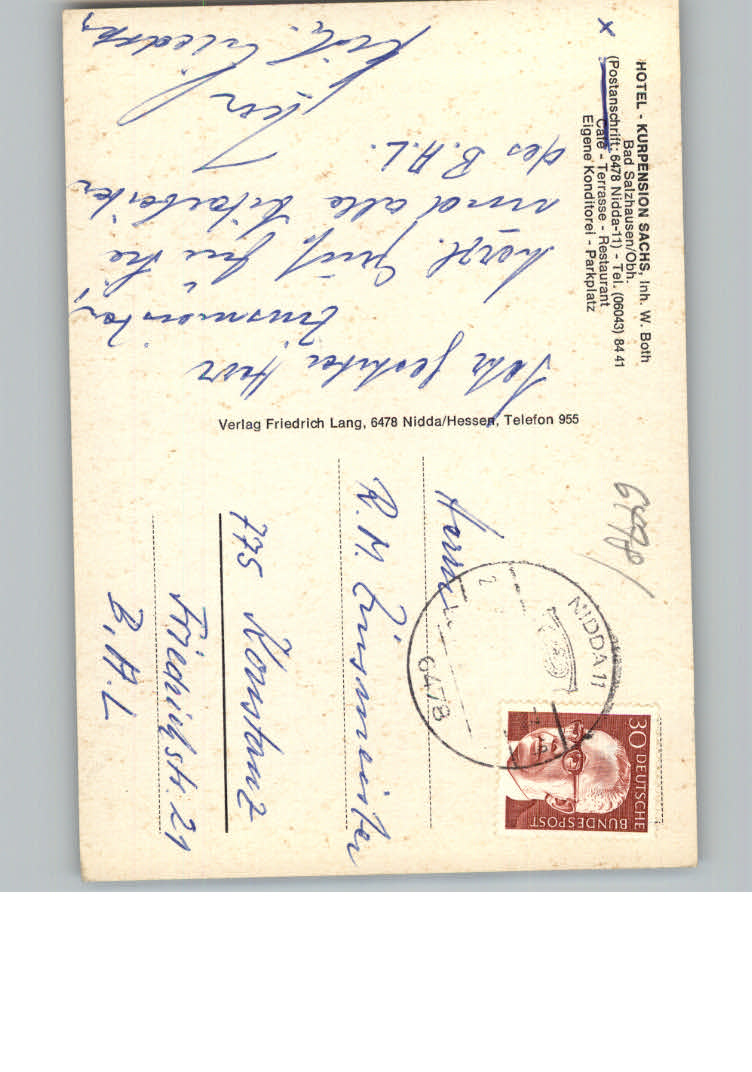 HOTEL - KURPENSION SACHS, Inh. W. Both
Bad Salzhausen/Obh.
(Postanschrift: 6478 Nidda-11) - Tel. (06043) 84 41
Café - Terrasse - Restaurant
Eigene Konditorei - Parkplatz
x
Sehr geehrter Herr
Zinsmeister,
herzl. Grüße für Sie
und alle Mitarbeiter
des B.A.L.
Ihr
Verlag Friedrich Lang, 6478 Nidda/Hessen, Telefon 955
6478/
NIDDA 11
6478
30 DEUTSCHE
BUNDESPOST
Herrn
K. H. Zinsmeister
775 Konstanz
Friedrichstr. 21
B.A.L